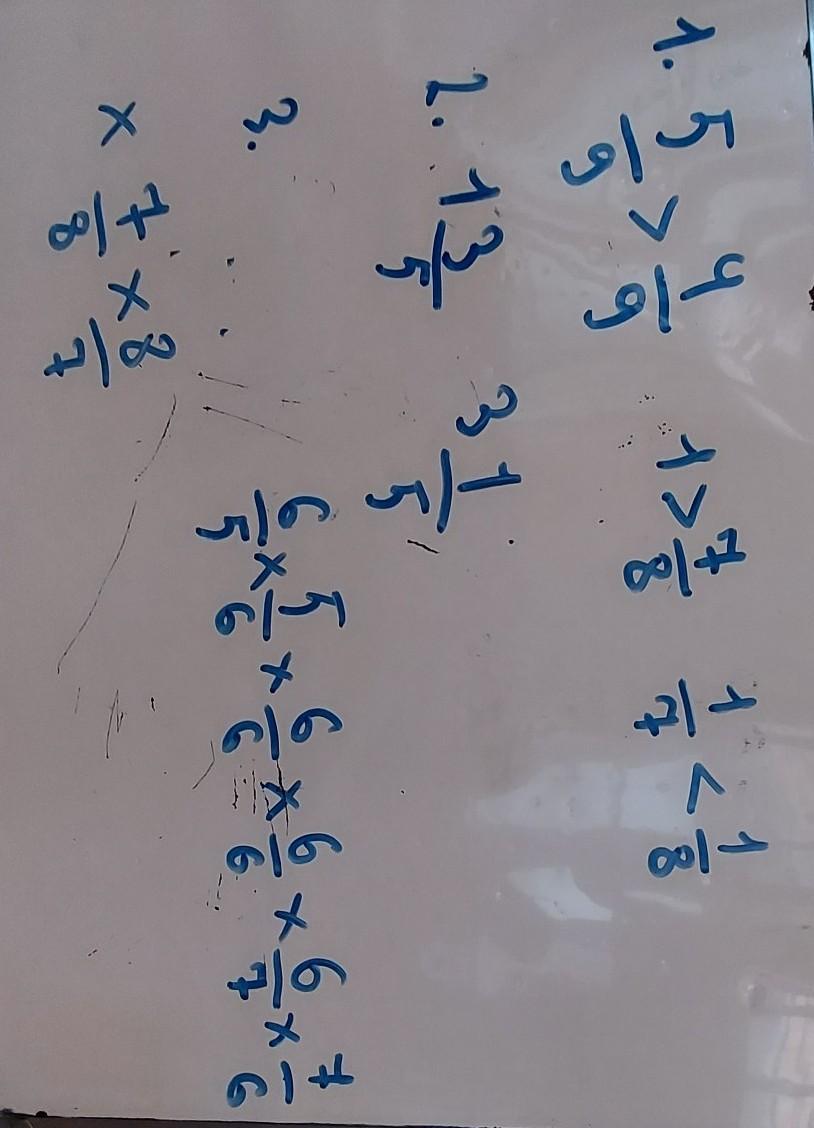 1. 5/9 > 4/9 1 > 7/8 1/7 < 1/8
2. 1 3/5 3 1/5
3. 6/5 × 5/6 × 6/6 × 6/6 × 6/7 × 7/6
× 7/8 × 8/7